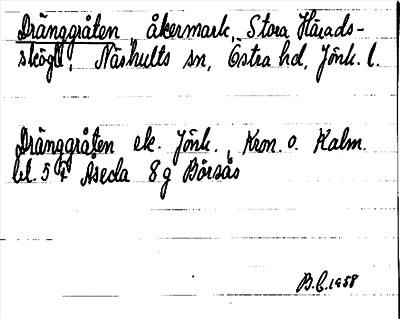 Dränggråten, åkermark, Stora Härads-
sköglle, Näshults sn, Östra hd, Jönk. l.
Dränggråten ek. Jönk., Kron. o. Kalm.
bl. 5 Åseda 8g Börsås
B.C. 1958